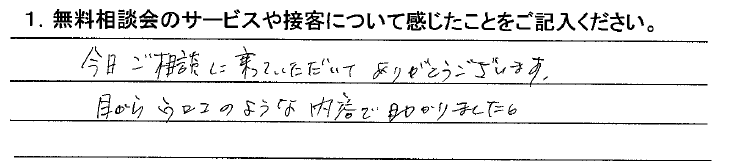 1. 無料相談会のサービスや接客について感じたことをご記入ください。
今日ご相談に乗っていただいてありがとうございます。
目からウロコのような内容で助かりました。